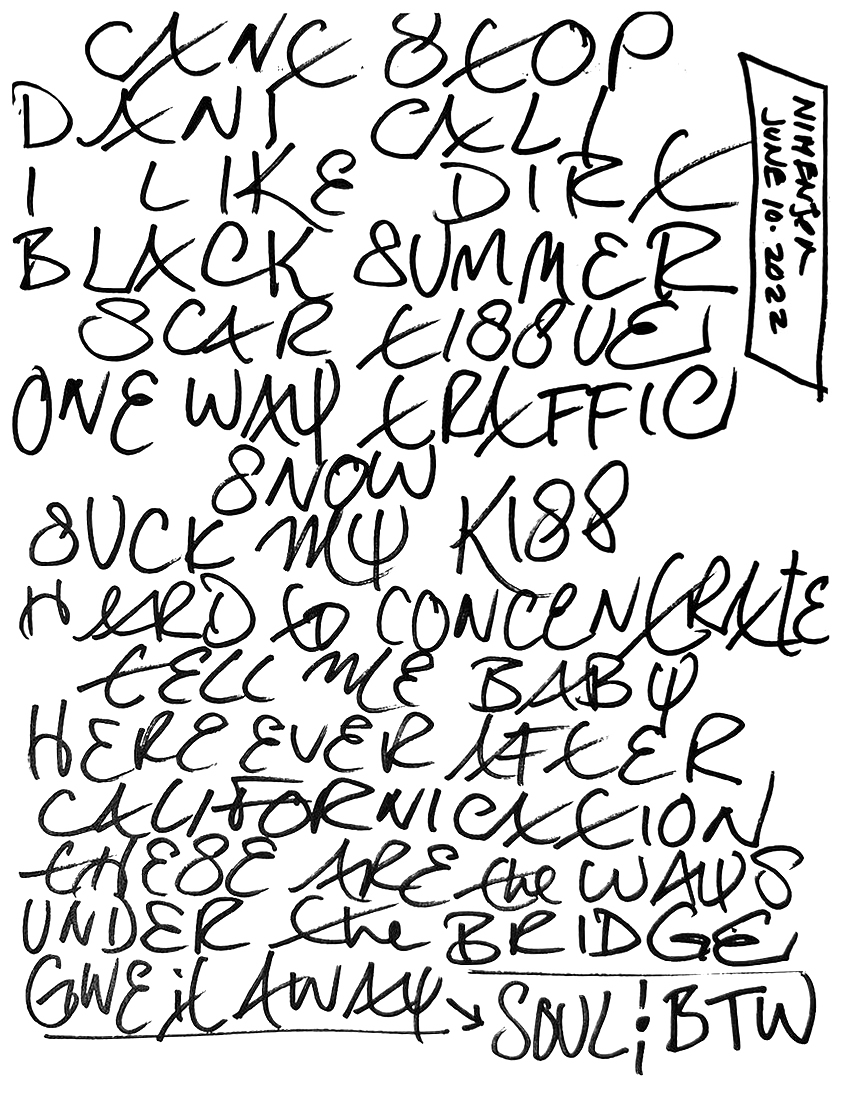 CANT STOP
DANI CALI
I LIKE DIRT
BLACK SUMMER
SCAR TISSUE
ONE WAY TRAFFIC
SNOW
SUCK MY KISS
HARD to CONCENTRATE
TELL ME BABY
HERE EVER AFTER
CALIFORNICATION
THESE ARE the WAYS
UNDER the BRIDGE
GIVE it AWAY → SOUL ¦ BTW
JUNE 10. 2022